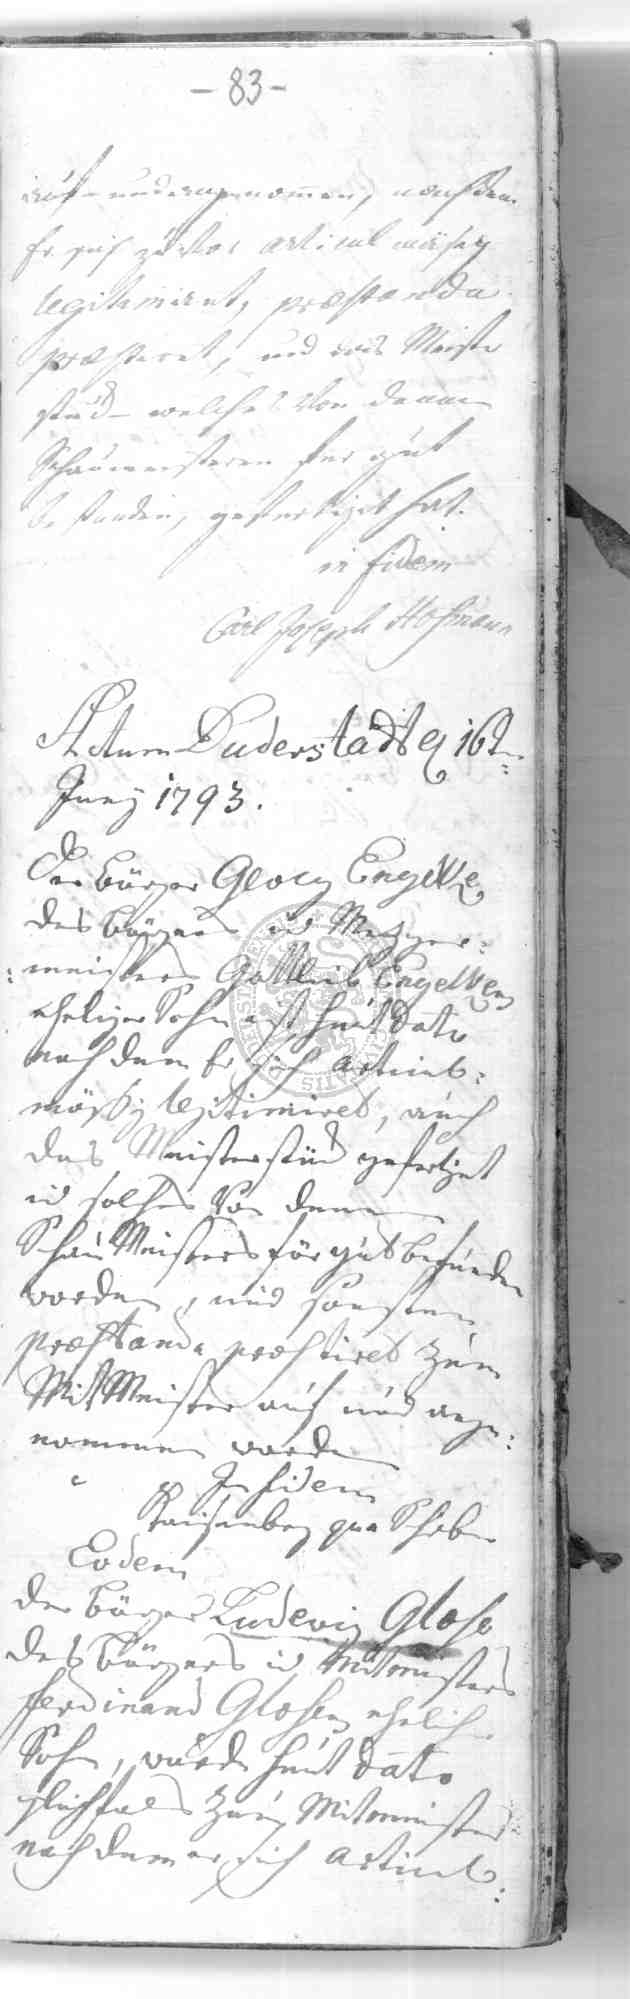 - 83 -
auf- und angenommen, nachdem
Er sich zu vor articul mäsig
legitimiret, præstanda
præstiret, und das Meister
stück welches von denen
Schaumeisteren fur gut
befunden, gefertiget hat.
in fidem
Carl Joseph Hofmann
Actum Duderstadt d 16ten
Juny 1793.
Der bürger Georg Engelke
des bürgers und Metzger-
meisters Gottlieb Engelken
ehelicher Sohn ist heut dato
nach dem Er sich articul-
mässig legitimiret, auch
das Meisterstück gefertiget
und solches von denen
Schau Meisters für gut befunden
worden, und sonsten
præstanda præstiret zum
Mit Meister auf und ange-
nommen worden
In fidem
qua Schreiber
Eodem
der bürger Ludewig Glose
des bürgers und Mitmeisters
Ferdinand Glosen ehelicher
Sohn, wurde heut dato
gleichfals zum Mitmeister
nach dem er sich articul-